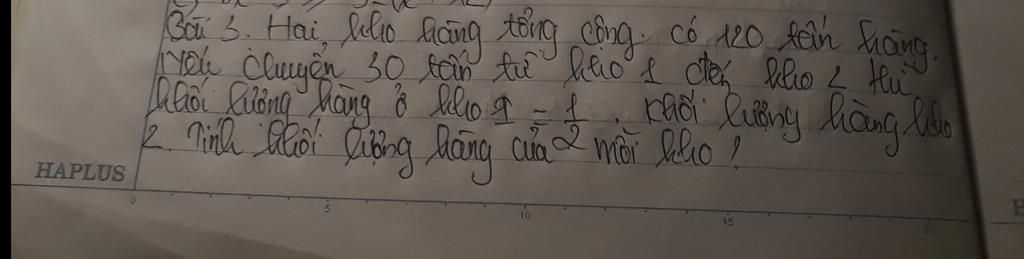 Bài 3. Hai kho hàng tổng cộng có 120 tấn hàng.
Nếu chuyển 30 tấn từ kho 1 đến kho 2 thì
khối lượng hàng ở kho 1 = 1/2 . khối lượng hàng kho
2. Tính khối lượng hàng của mỗi kho ?
HAPLUS
0 5 10 15 20
H